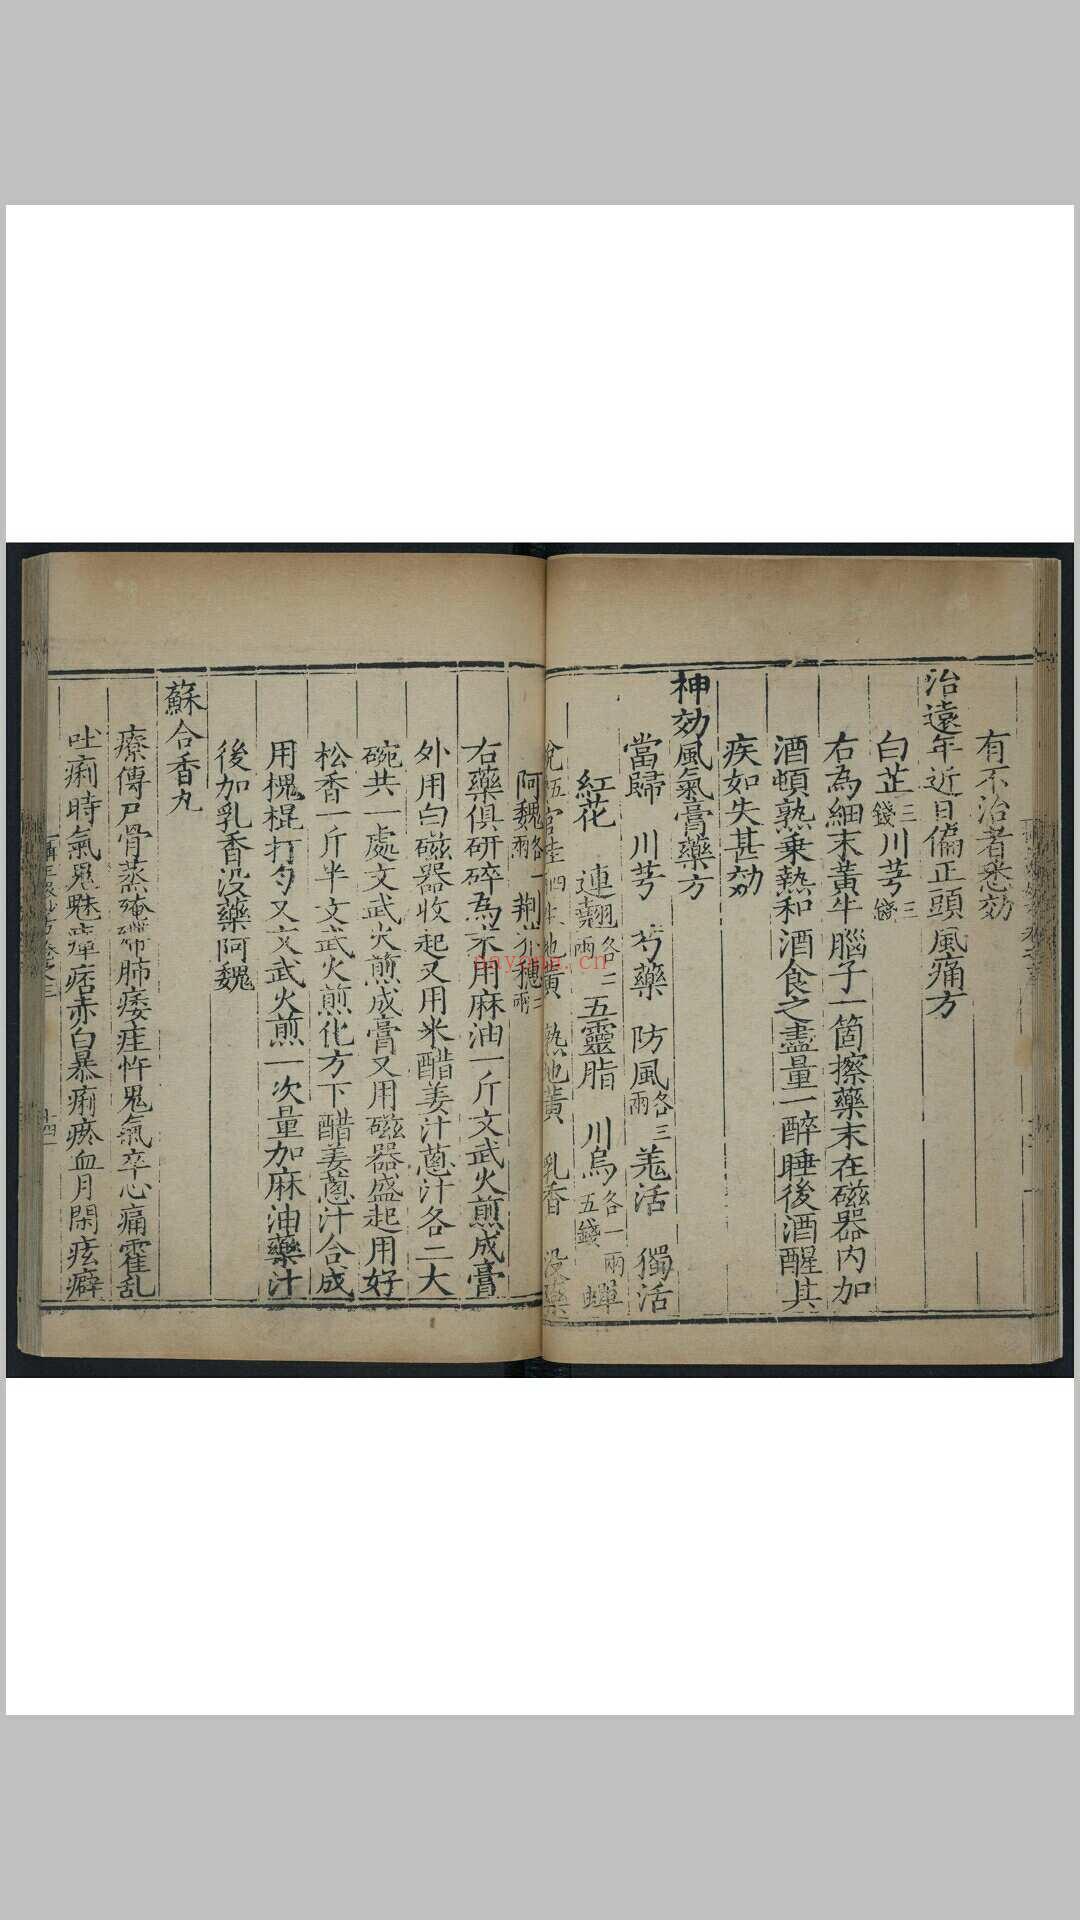 有不治者悉効
治遠年近日偏正頭風痛方
白芷三錢川芎三錢
右為細末黃牛腦子一箇擦藥末在磁器內加
酒頓熟乗熱和酒食之盡量一醉睡後酒醒其
疾如失甚効
神効風氣膏藥方
當歸 川芎 芍藥 防風各三兩羌活 獨活
紅花 連翹各二兩五靈脂 川烏各一兩五錢蟬
地黃 熟地黃 乳香 没藥
阿魏各一兩荆芥穗二兩
右藥俱研碎為末用麻油一斤文武火煎成膏
外用白磁器收起又用米醋姜汁蔥汁各二大
碗共一處文武火煎成膏又用磁器盛起用好
松香一斤半文武火煎化方下醋姜蔥汁合成
用槐棍打匀又文武火煎一次量加麻油藥汁
後加乳香没藥阿魏
蘇合香丸
療傳尸骨蒸殗殜肺痿疰忤鬼氣卒心痛霍乱
吐痢時氣鬼魅瘴瘧赤白暴痢瘀血月閉痃癖
十四
nayona.cn